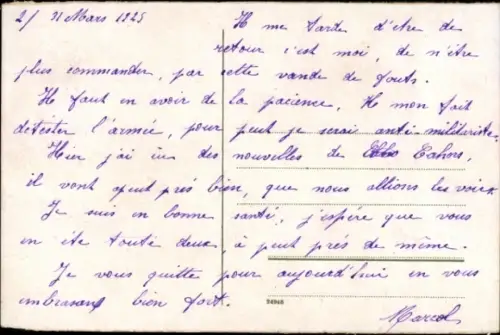 2/ 31 Mars 1925
Il me tarde d'etre de
retour c'est moi, de n'être
plus commander, par cette vande de fouts.
Il faut en avoir de la pacience, Il mon fait
detester l'armée, pour peut je serai anti-militariste.
Hier j'ai eu des nouvelles de Cahors,
il vont apeut prés bien, que nous allions les voir.
Je suis en bonne santé, j'espére que vous
en ete toute deux, à peut prés de même.
Je vous quitte pour aujourd'hui en vous
embrasant bien fort.
Marcel